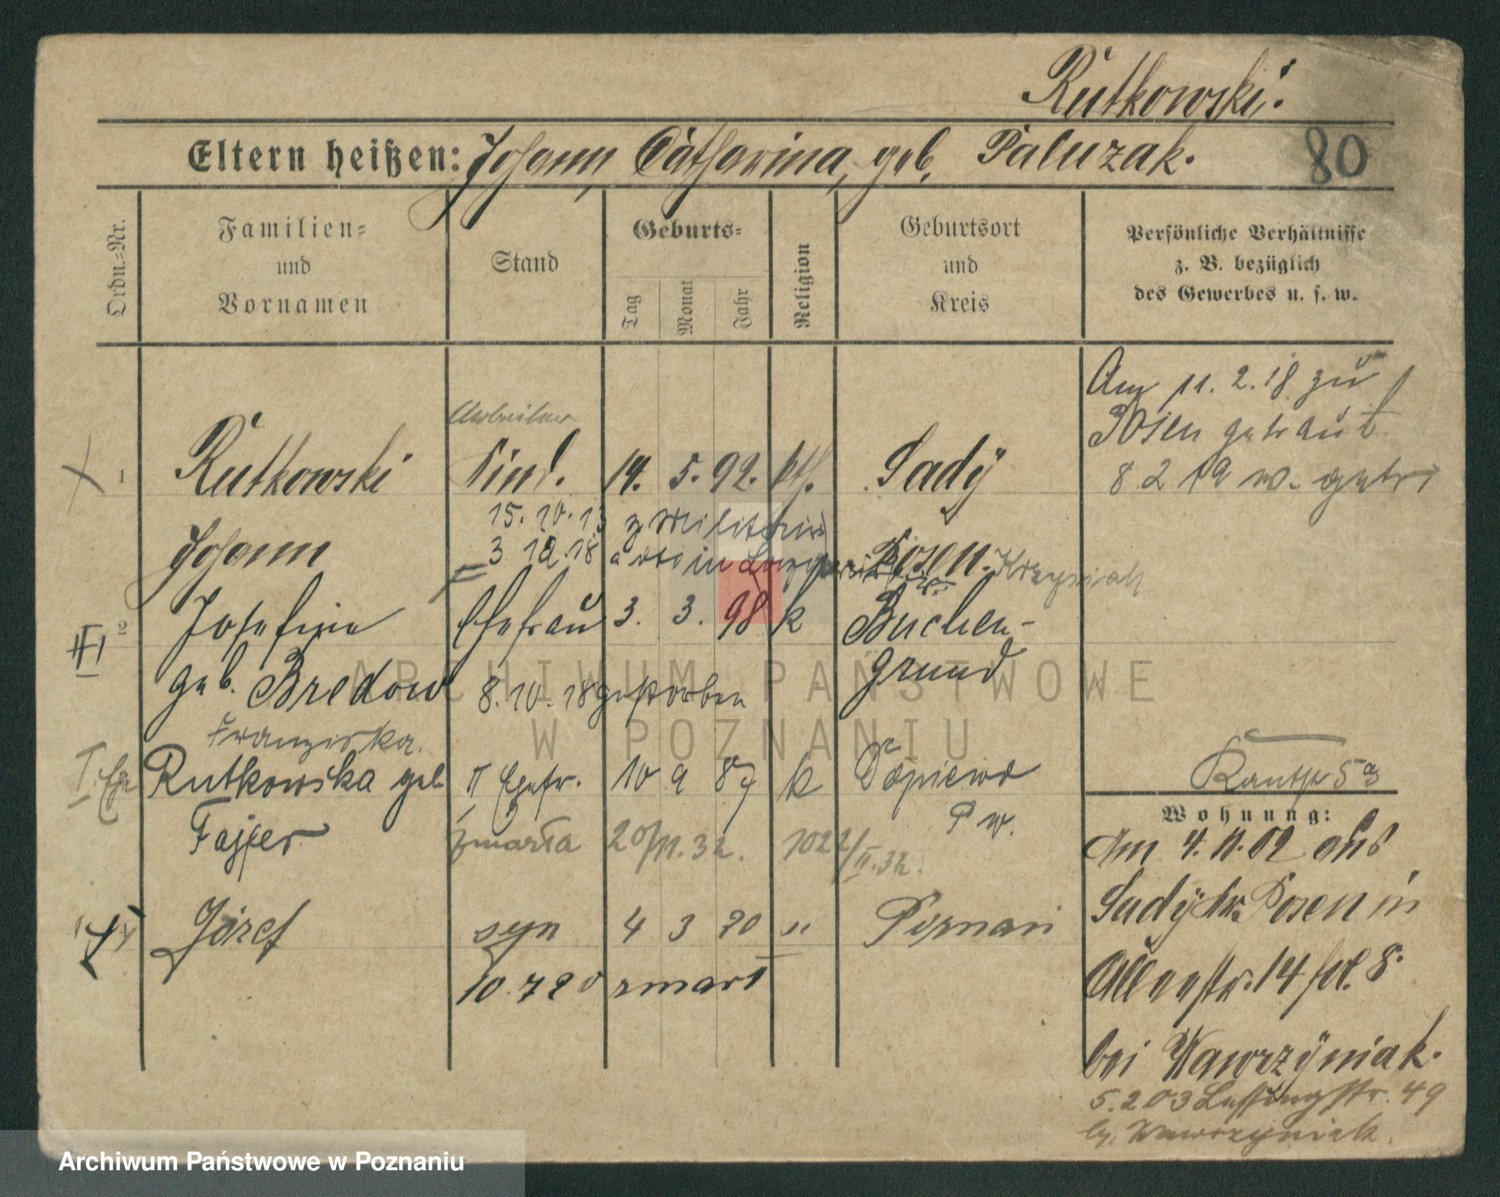 Rutkowski.
Eltern heißen: Johann, Catharina, geb. Paluzak.
80
Ordn.-Nr.
Familien-
und
Vornamen
Stand
Geburts-
Tag
Monat
Jahr
Religion
Geburtsort
und
Kreis
Persönliche Verhältnisse
z. B. bezüglich
des Gewerbes u. s. w.
Am 11. 2. 18 zu
Posen getraut.
8 2 19 w. getr
Arbeiter
1 Rutkowski Kind. 14. 5. 92. kth. Sady
15. 10. 13 z Militär
Johann Posen.
3 12. 18 in
2 Josefine Ehefrau 3. 3. 98 k Buchen-
grund
geb. Bredow 8. 10. 18 gestorben
Franziska.
Rutkowska geb II Ehefr. 10 9 87 k Dopiewo
P w.
Fajfer zmarła 20/11. 32. 1022/II.32.
Józef syn 4 3 20 " Poznań
10. 7 20 zmarł
53
Wohnung:
Am 4. 11. 02 aus
Sady Kr. Posen in
14 fol. 8.
bei Wawrzyniak.
5. 2 03 Lessingstr. 49
b. Wawrzyniak.
ARCHIWUM PAŃSTWOWE
W POZNANIU
Archiwum Państwowe w Poznaniu